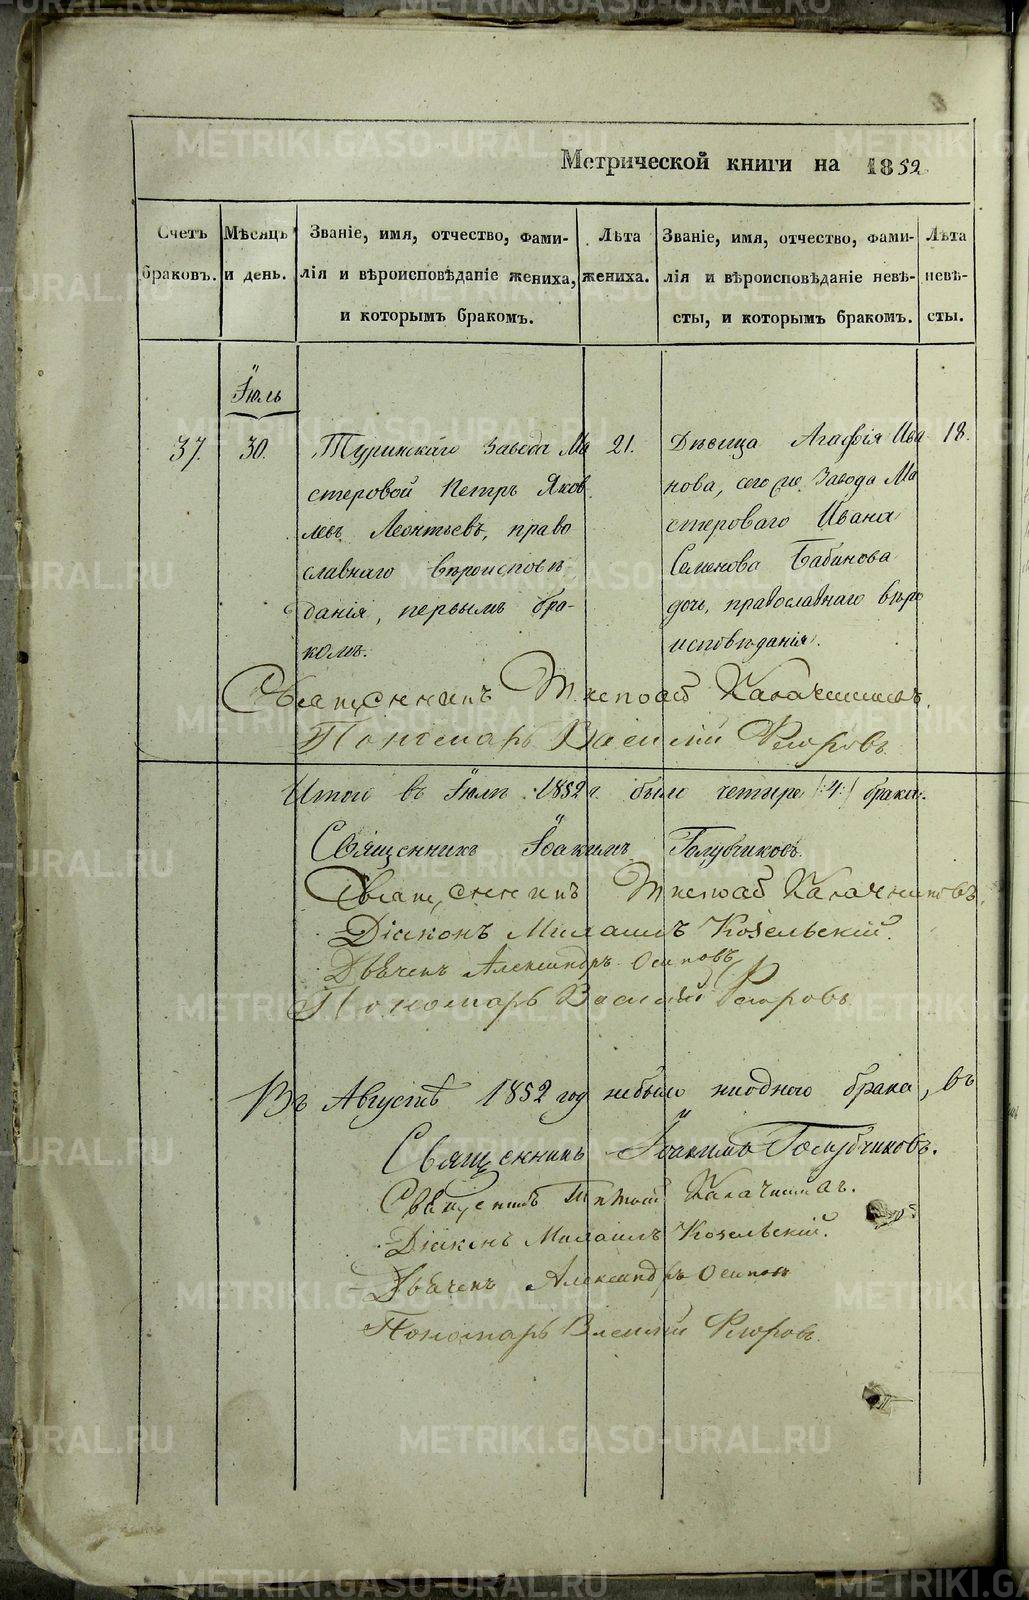 METRIKI.GASO-URAL.RU
Метрической книги на 1852
Счетъ браковъ.
Мѣсяцъ и день.
Званіе, имя, отчество, фами-
лія и вѣроисповѣданіе жениха,
и которымъ бракомъ.
Лѣта жениха.
Званіе, имя, отчество, фами-
лія и вѣроисповѣданіе невѣ-
сты, и которымъ бракомъ.
Лѣта невѣ-
сты.
Іюль
37.
30.
Туринскаго завода Ма
стеровой Петръ Яков
левъ Леонтьевъ, право
славнаго вѣроисповѣ
данія, первымъ бра-
комъ.
21.
Дѣвица Агафія Ива
нова, сего же Завода Ма
стероваго Ивана
Семенова Бабинова
дочь, православнаго вѣро
исповѣданія.
18.
Священникъ
Пономарь Василій Ѳедоровъ
Итого въ Іюлѣ 1852 г. было четыре /:4:/ брака.
Священникъ Іоакимъ Голубчиковъ.
Священникъ
Діаконъ Михаилъ Козельскій.
Дьячекъ Александръ Осиповъ
Пономарь Василій Ѳедоровъ
Въ Августѣ 1852 год небыло ниодного брака, въ
Священникъ Іоакимъ Голубчиковъ.
Священникъ
Діаконъ Михаилъ Козельскій.
Дьячекъ Александръ Осиповъ
Пономарь Василій Ѳедоровъ.